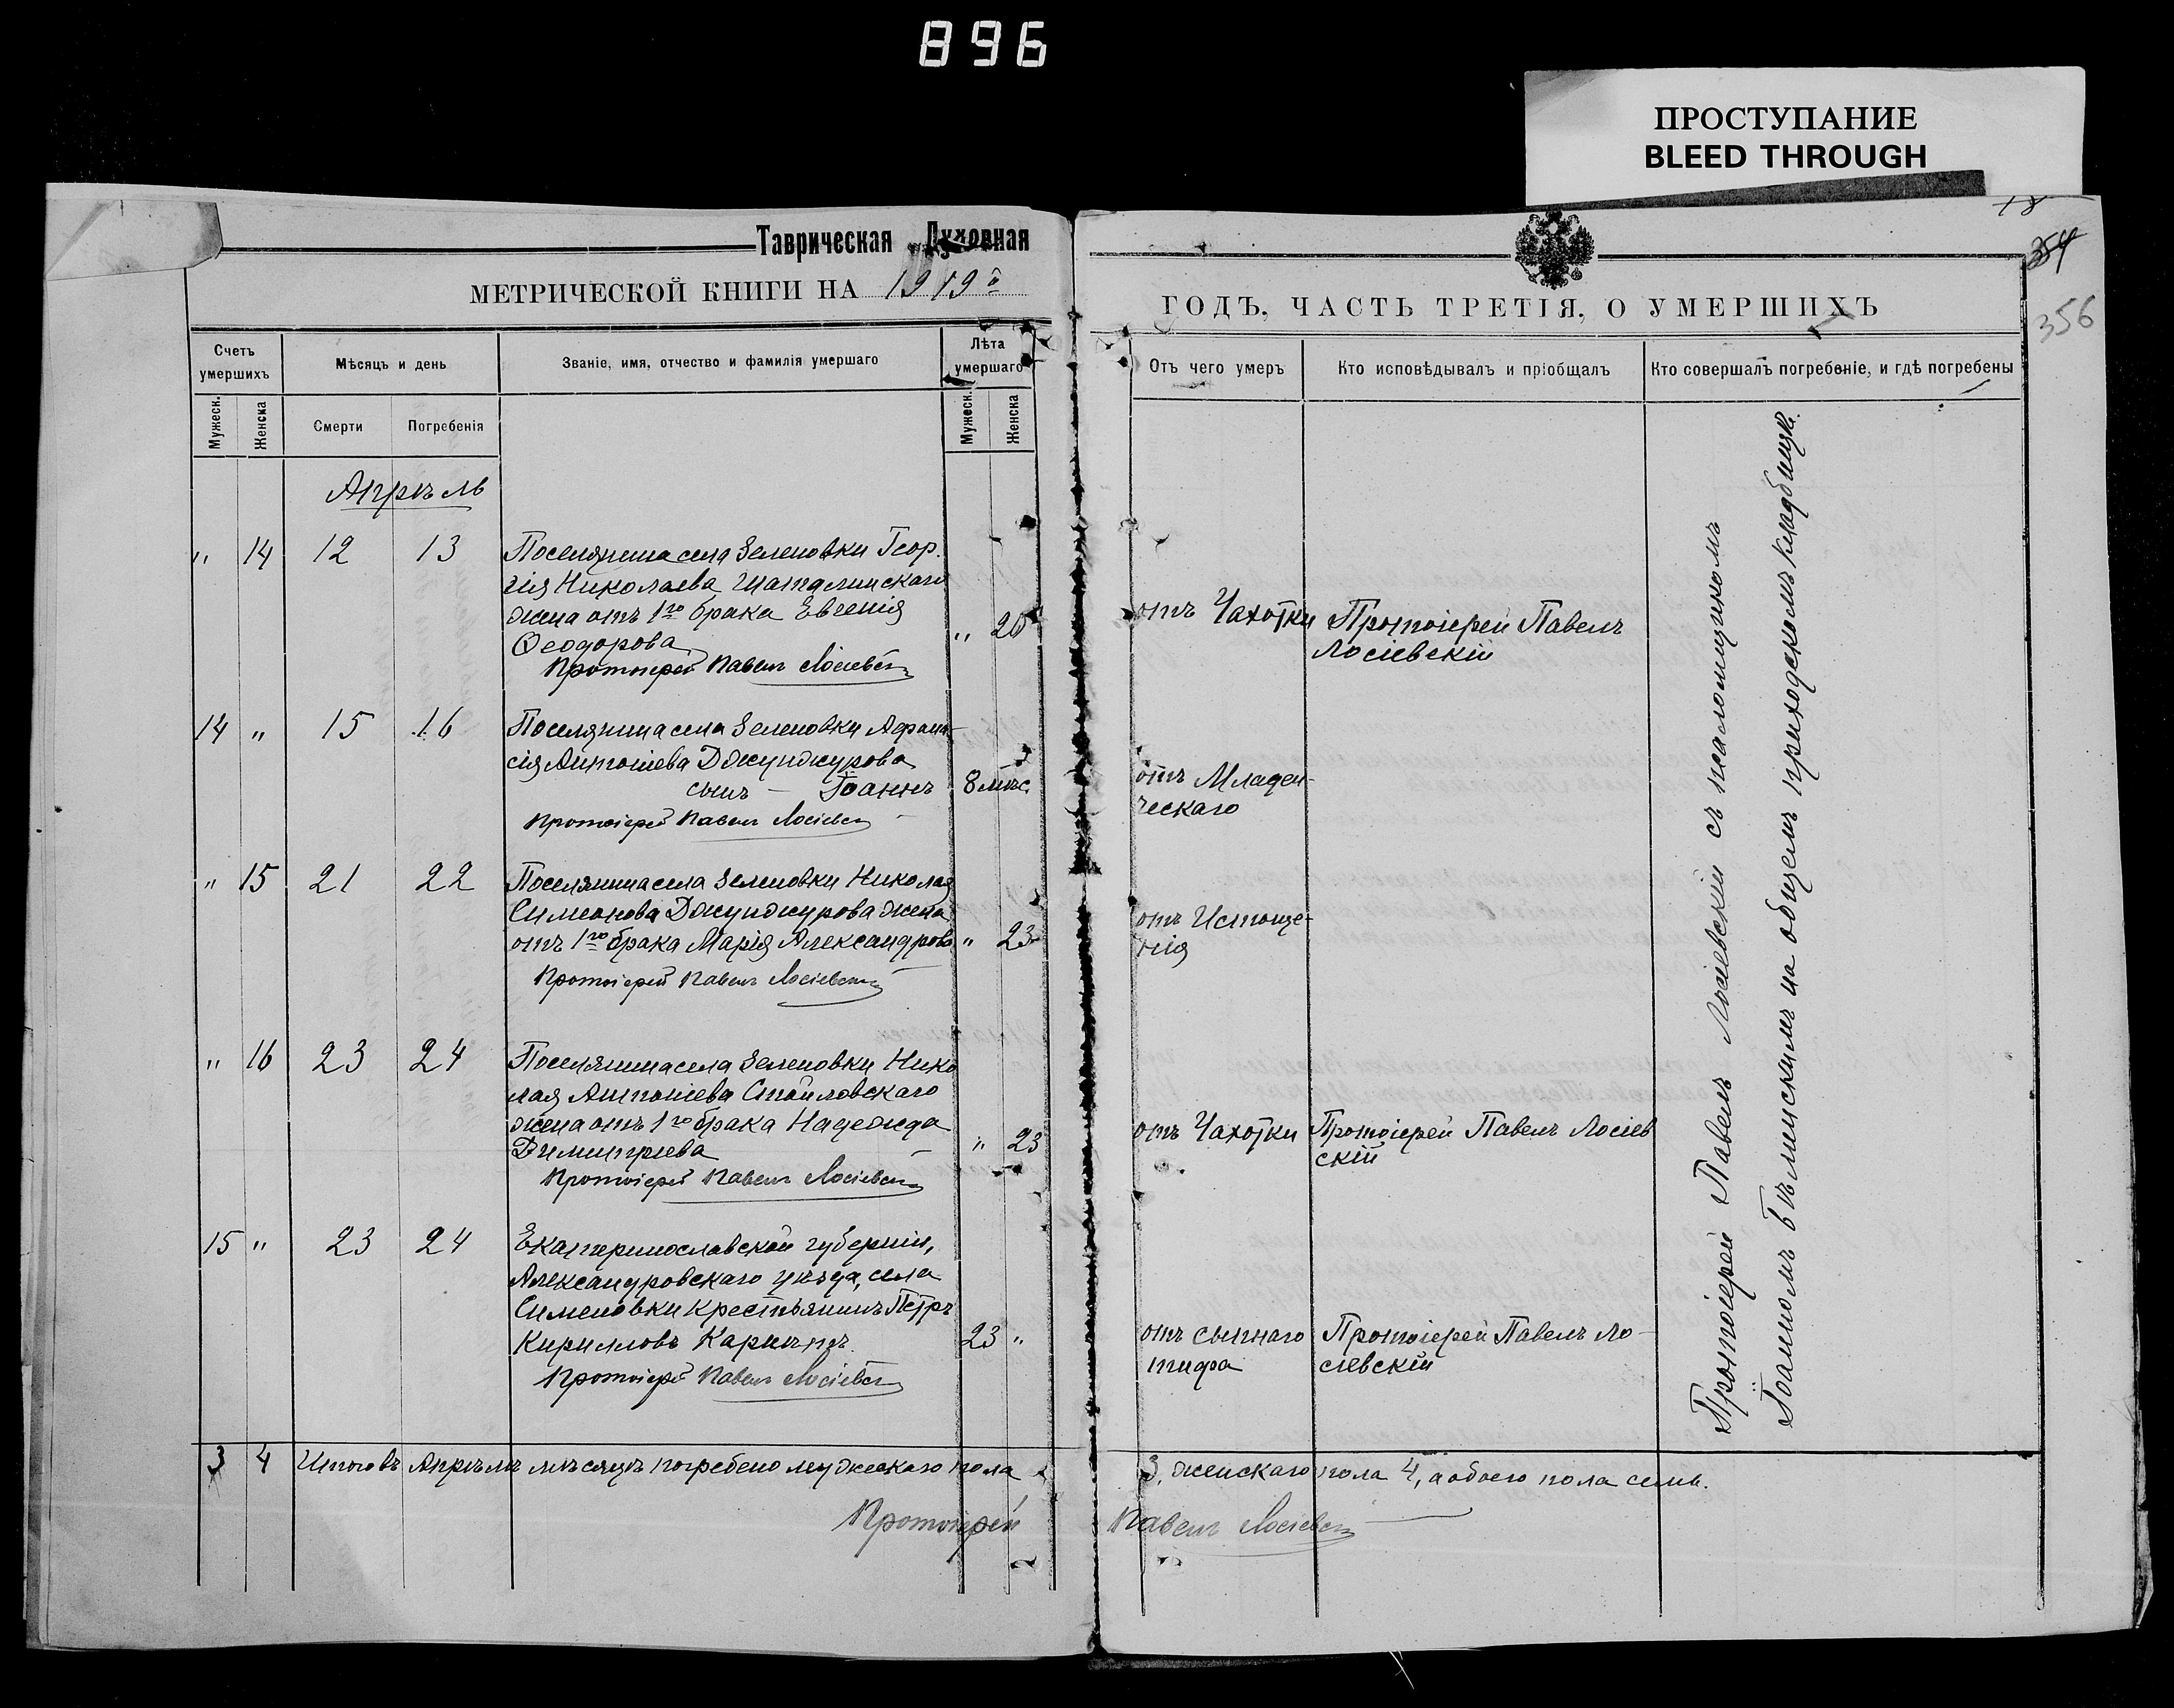 896
ПРОСТУПАНИЕ
BLEED THROUGH
18
354
356
Таврическая Духовная
МЕТРИЧЕСКОЙ КНИГИ НА 1919й
ГОДЪ, ЧАСТЬ ТРЕТІЯ, О УМЕРШИХЪ
Счетъ умершихъ
Мѣсяцъ и день
Званіе, имя, отчество и фамилія умершаго
Лѣта умершаго
Отъ чего умеръ
Кто исповѣдывалъ и пріобщалъ
Кто совершалъ погребеніе, и гдѣ погребены
Мужеск.
Женска
Смерти
Погребенія
Мужеск.
Женска
Апрѣль
" 14 12 13 Поселянина села Зеленовки Геор-
гія Николаева Шаталинскаго
жена отъ 1го брака Евгенія
Ѳеодорова " 20 отъ Чахотки Протоіерей Павелъ
Лосіевскій
Протоіерей Павелъ Лосіевскій
14 " 15 16 Поселянина села Зеленовки Афана-
сія Антоніева Джунджурова
сынъ — Іоаннъ 8 мѣс. отъ Младен-
ческаго
Протоіерей Павелъ Лосіевскій
" 15 21 22 Поселянина села Зеленовки Николая
Симеонова Джунджурова жена
отъ 1го брака Марія Александрова " 23 отъ Истоще-
нія
Протоіерей Павелъ Лосіевскій
" 16 23 24 Поселянина села Зеленовки Нико
лая Антоніева Стойловскаго
жена отъ 1го брака Надежда
Димитріева " 23 отъ Чахотки Протоіерей Павелъ Лосіев
скій
Протоіерей Павелъ Лосіевскій
15 " 23 24 Екатеринославской губерніи,
Александровскаго уѣзда, села
Сименовки крестьянинъ Петръ
Кирилловъ 23 " отъ сыпнаго Протоіерей Павелъ Ло-
тифа сіевскій
Протоіерей Павелъ Лосіевскій
Протоіерей Павелъ Лосіевскій съ псаломщикомъ
Іоанномъ Бѣлинскимъ на общемъ приходскомъ кладбищѣ.
3 4 Итого въ Апрѣлѣ мѣсяцѣ погребено мужескаго пола 3, женскаго пола 4, а обоего пола семь.
Протоіерей Павелъ Лосіевскій